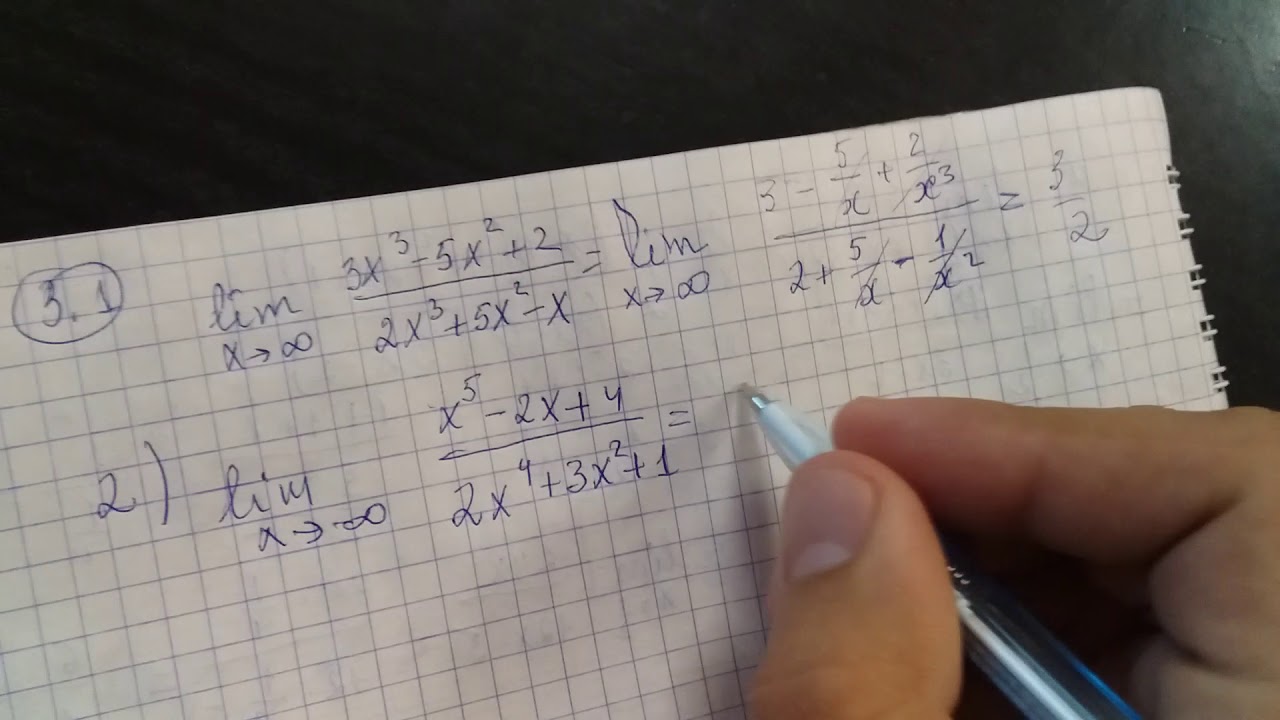 3.1 lim x→∞ (3x³ - 5x² + 2)/(2x³ + 5x² - x) = lim x→∞ (3 - 5/x + 2/x³)/(2 + 5/x - 1/x²) = 3/2
2) lim x→-∞ (x⁵ - 2x + 4)/(2x⁴ + 3x² + 1) =